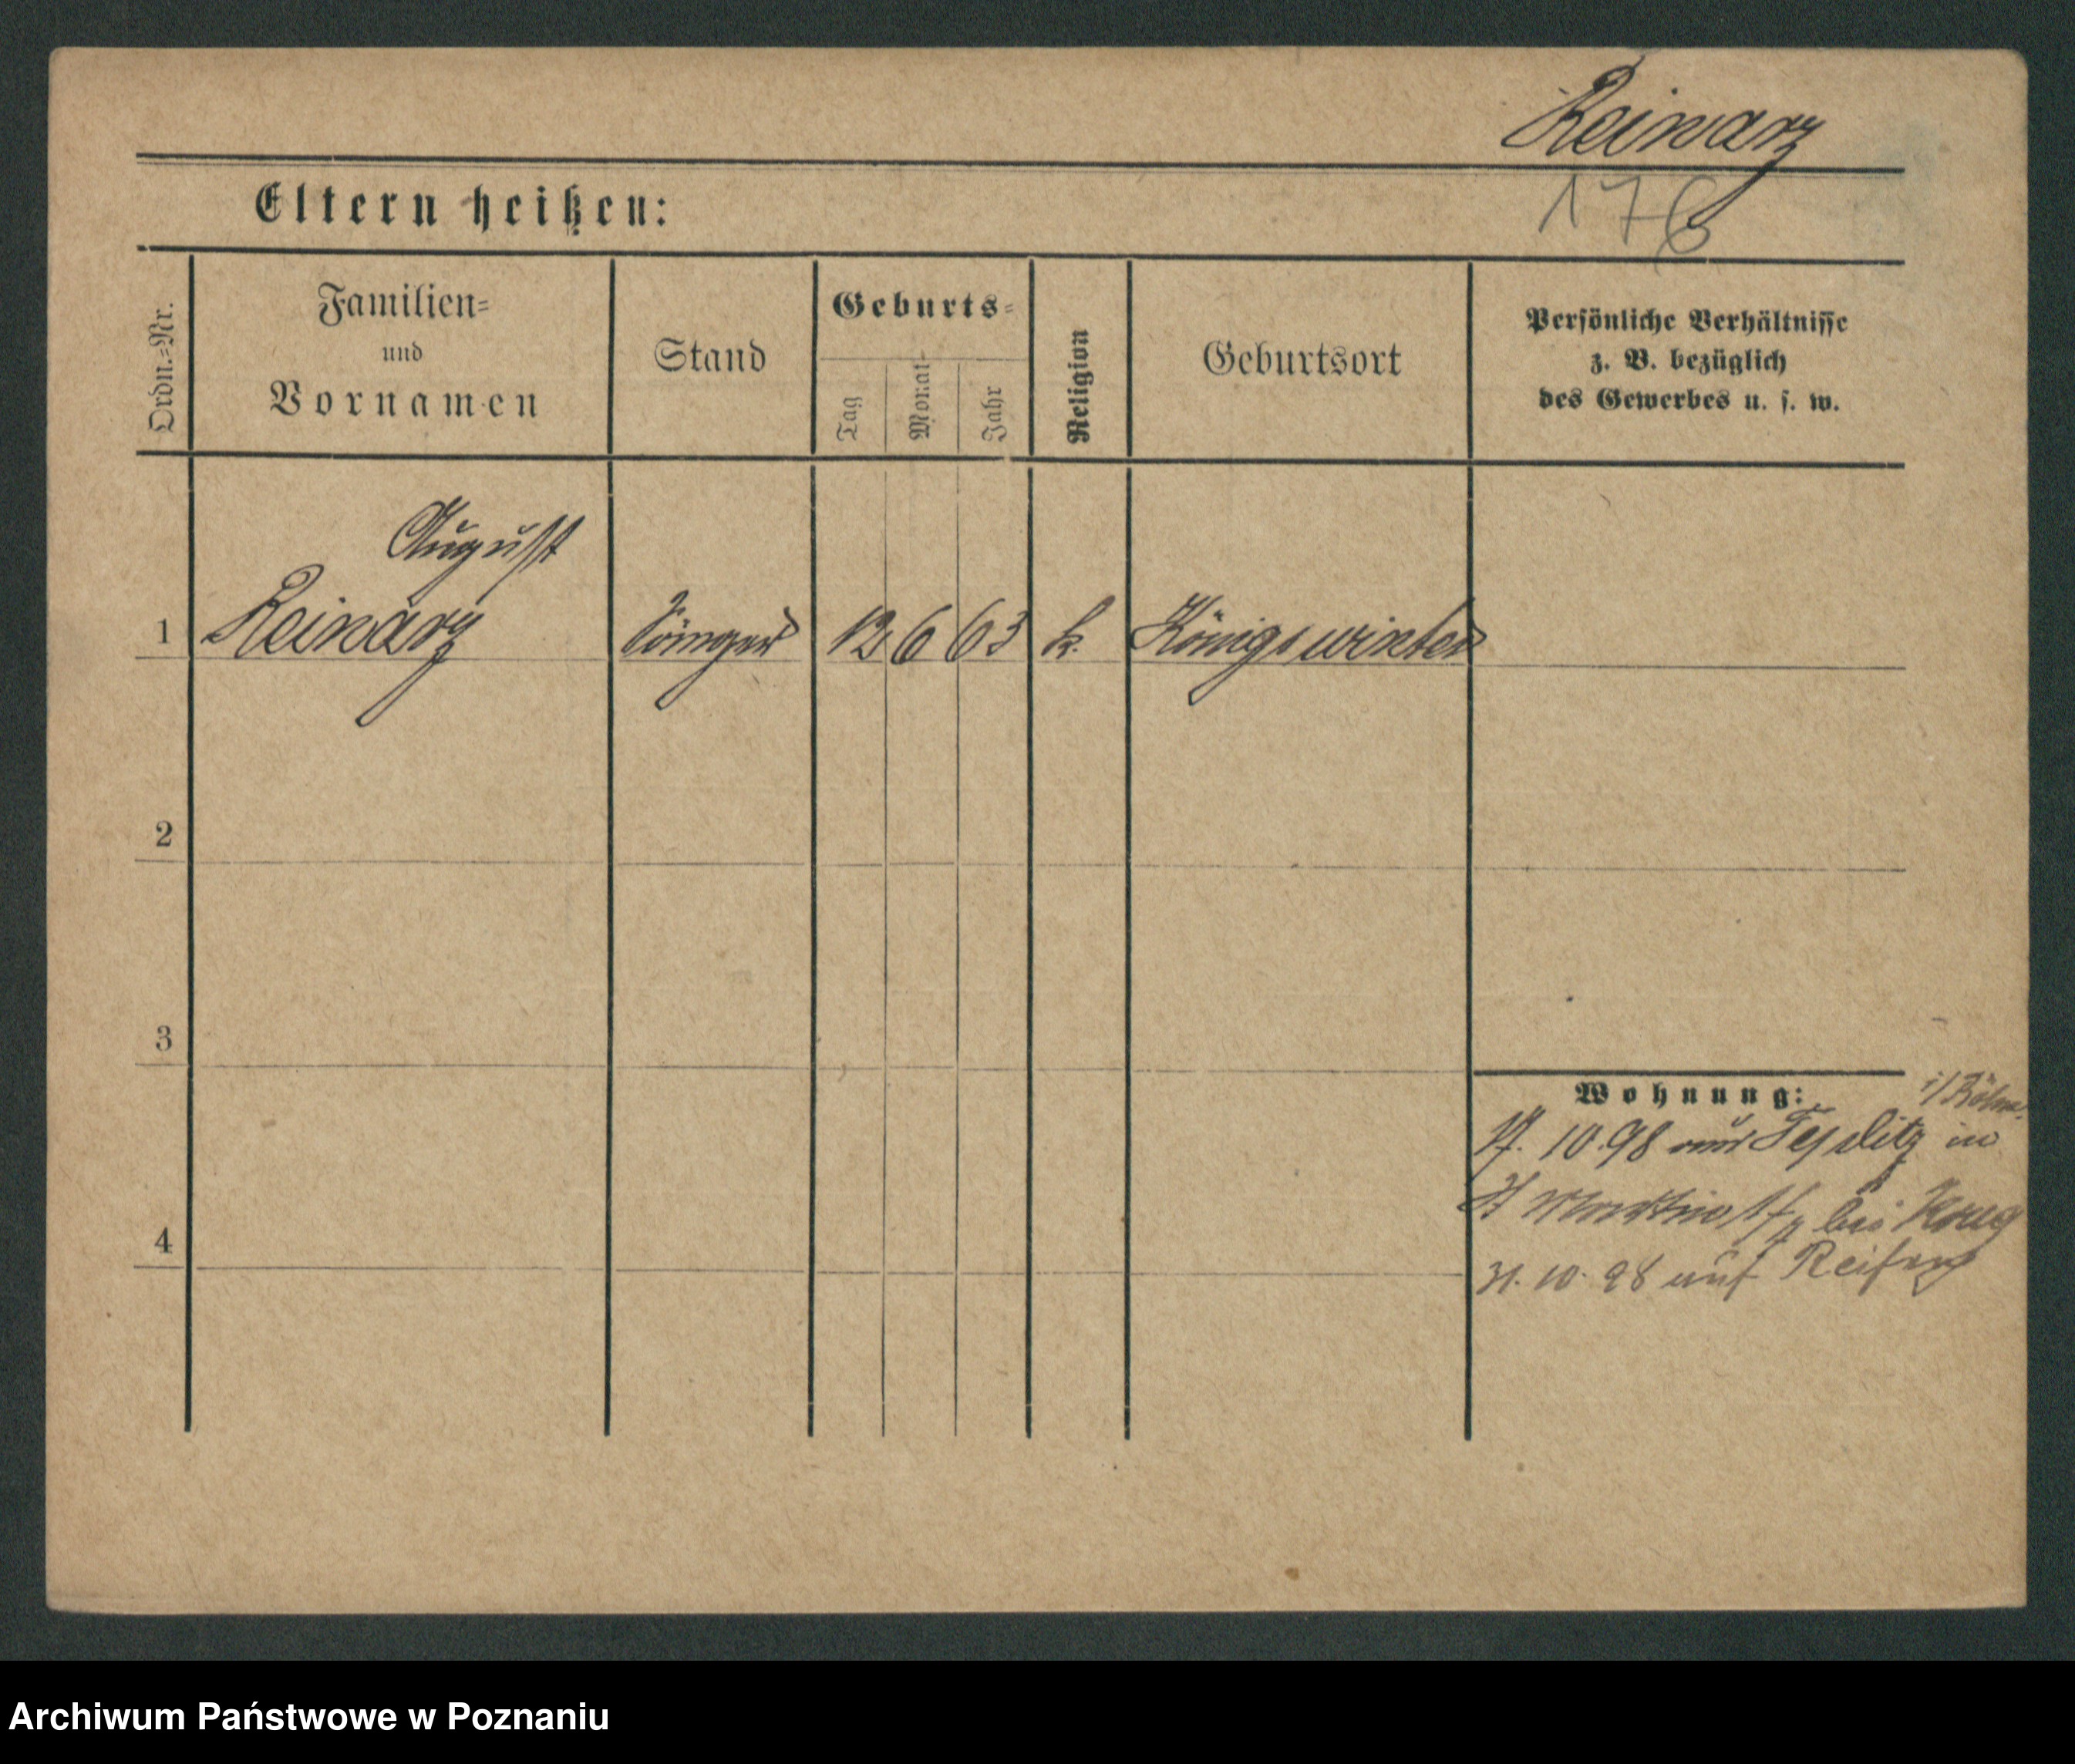 Reinarz
176
Eltern heißen:
Ordn.=Nr.
Familien=
und
Vornamen
Stand
Geburts=
Tag
Monat
Jahr
Religion
Geburtsort
Persönliche Verhältnisse
z. B. bezüglich
des Gewerbes u. s. w.
August
1 Reinarz Sänger 12 6 63 k. Königswinter
2
3
Wohnung:
i/Böhm.
17. 10. 98 aus Teplitz in
St Martin bei Krug
4
31. 10. 98 auf Reisen
Archiwum Państwowe w Poznaniu